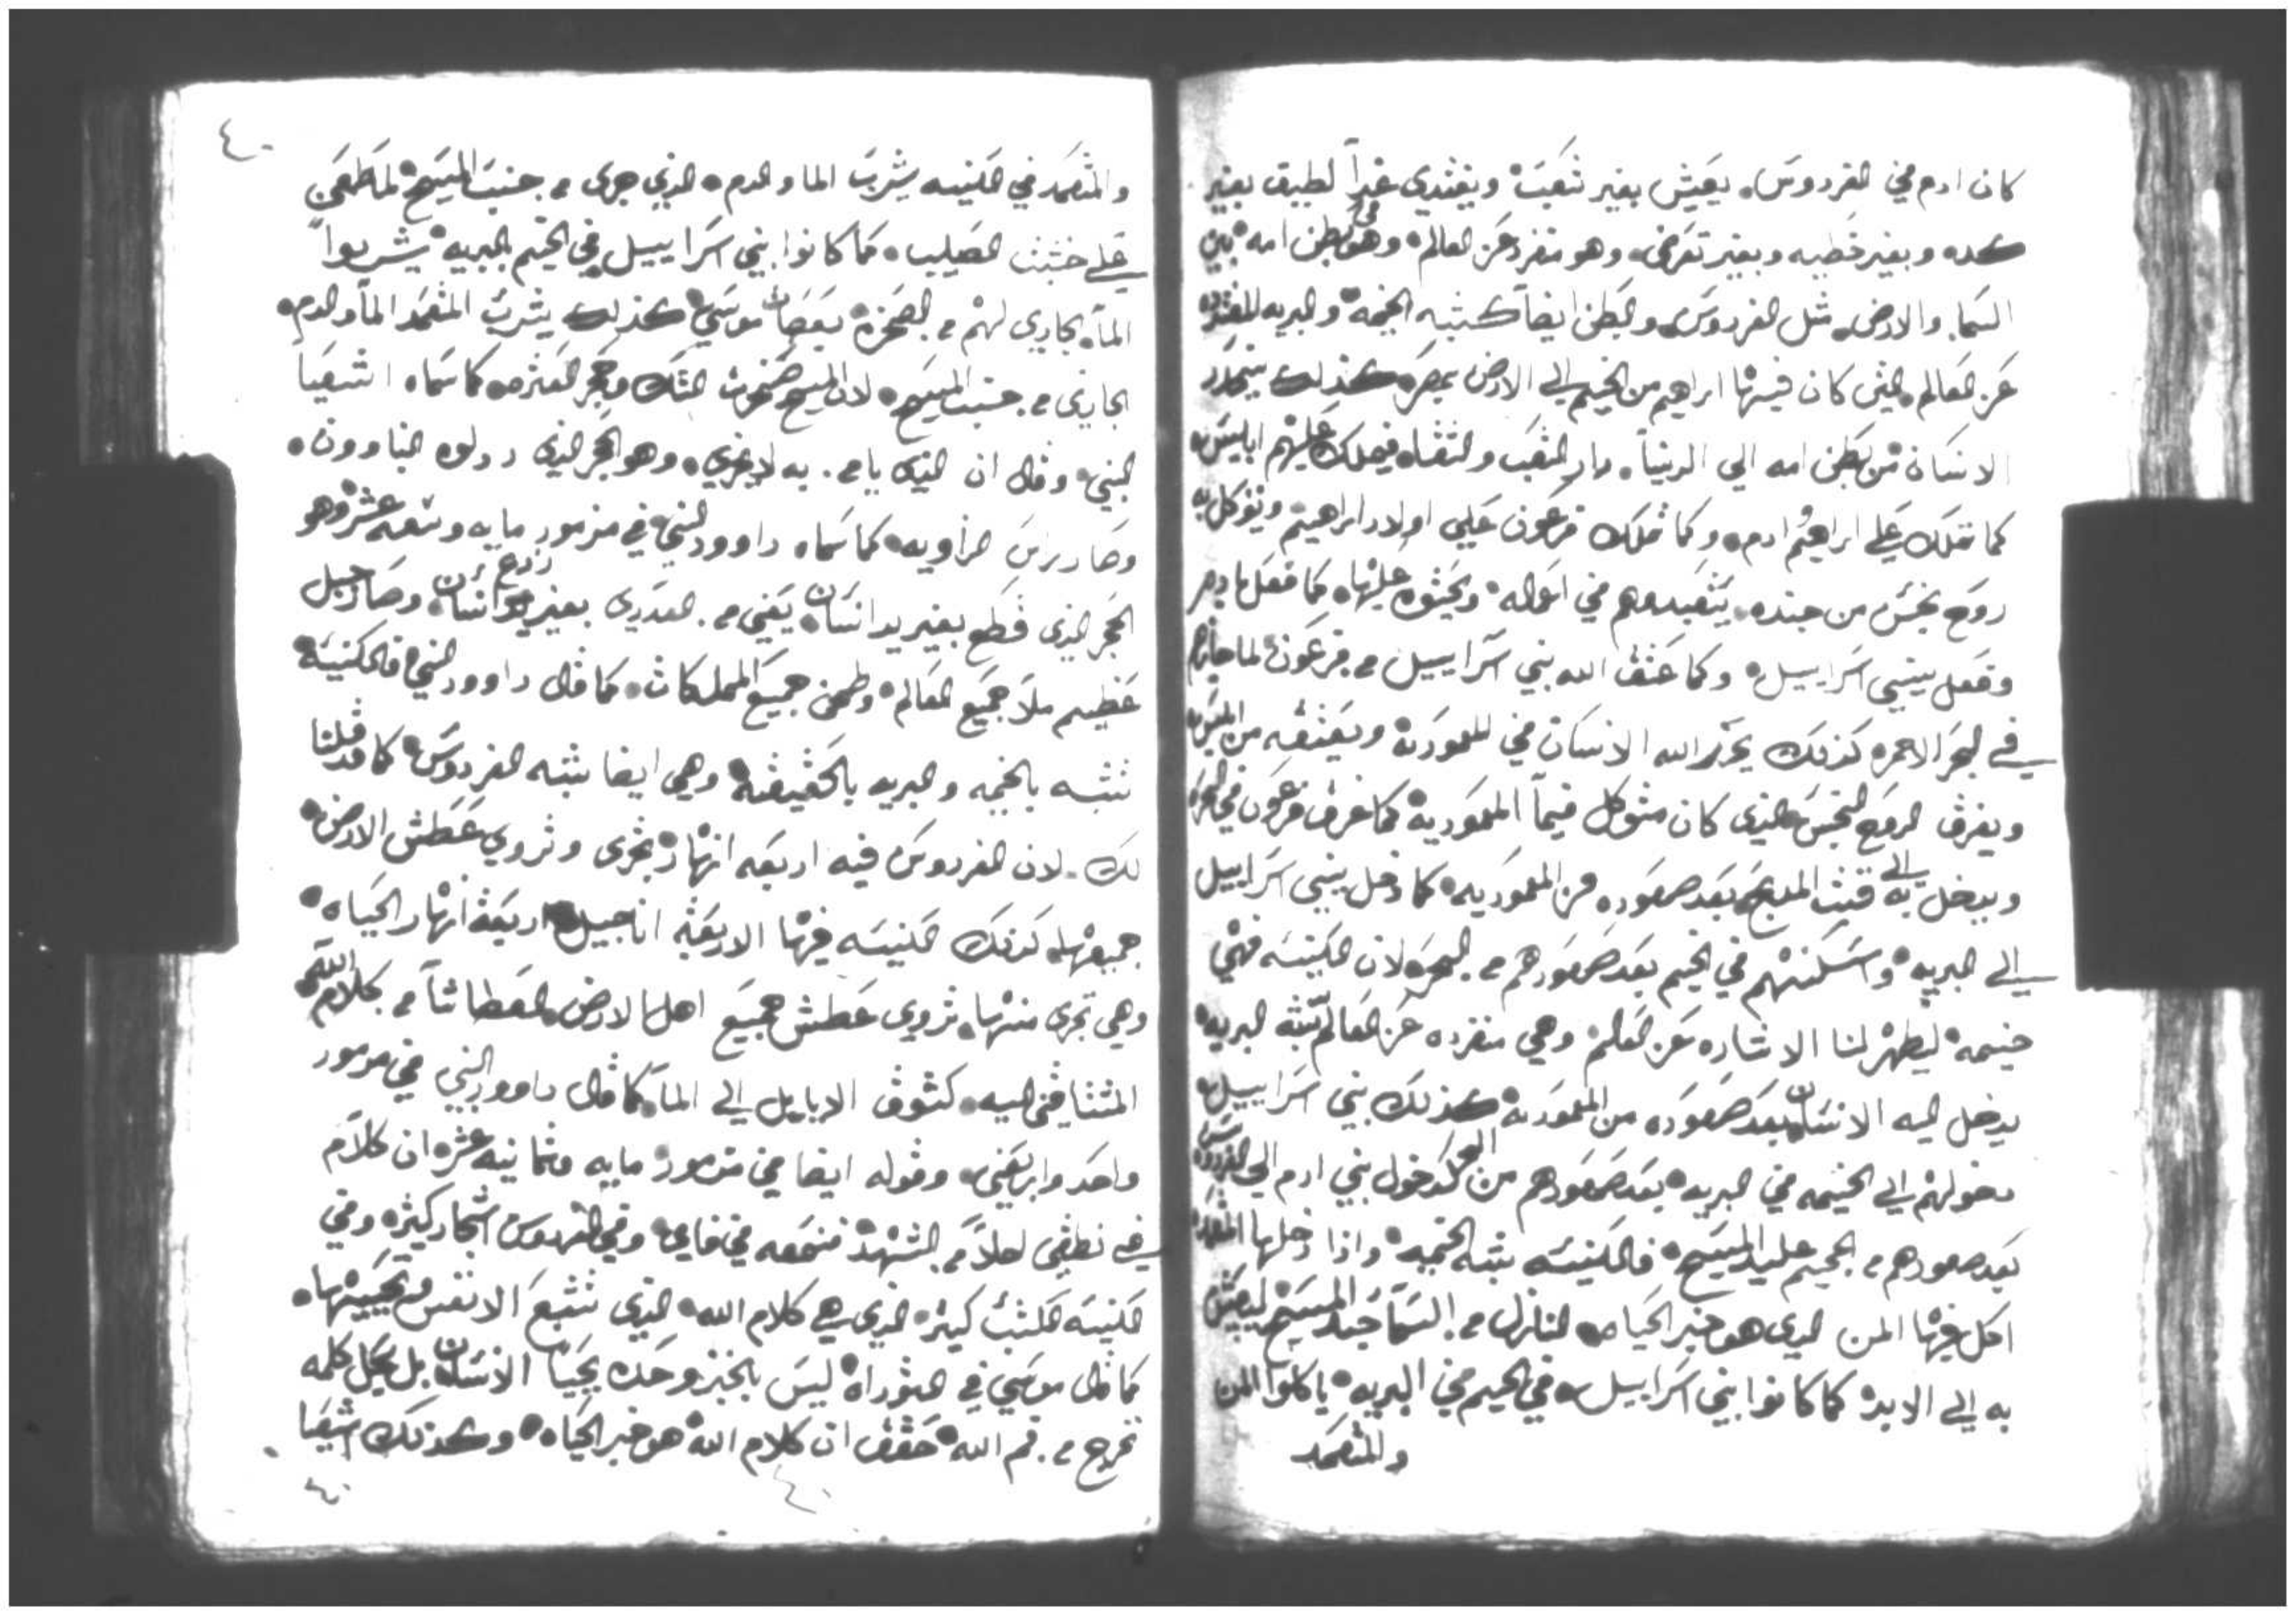 كان ادم في الفردوس. يعيش بغير تعب وينغدي غداً لطيف بغير
كده وبغير خطيه وبغير تعرض. وهو منفرد عن العالم وهو في بطن امه بين
السما والارض. مثل الفردوس والبطن ايضاً كشبه الخيمه والبريه المنفرده
عن العالم. التى كان فيها ابراهيم من الخيم الي الارض بمصر كذلك ينحدر
الانسان من بطن امه الي الدنيا. دار التعب والشقاه فيملك عليهم ابليس
كما تملك علي ابراهيم ادم. وكما تملك فرعون علي اولاد ابراهيم ويتوكل به
روح نجس من جنده. يتعبدهم في اعماله ويحثوه عليها. كما فعل بادم
وفعل ببني اسراييل وكما عتق الله بني اسراييل من فرعون لما جازهم
في البحر الاحمر. كذلك يحرر الله الانسان في المعموديه ويعتقه من ابليس
ويغرق الروح النجس الذى كان متوكل فيما المعموديه كما غرق فرعون في البحر
ويدخل به الي قدس المدبح بعد صعوده من المعموديه كما دخل ببني اسراييل
الي البريه واسكنهم في الخيم بعد صعودهم من البحر. لان الكنيسه فهي
خيمه ليظهر لنا الاشاره عن العالم وهي منفرده عن العالم تشبه البريه
يدخل اليه الانسان بعد صعوده من المعموديه كذلك بني اسراييل
دخولهم الي الخيمه في البريه بعد صعودهم من البحر كدخول بني ادم الي الفردوس
بعد صعودهم من الجحيم عليد المسيح فالكنيسه تشبه الخيمه واذا دخلها المتعمد
اكل فيها المن الذى هو خبز الحياه النازل من السما جسد المسيح ليعيش
به الي الابد كما كانوا بني اسراييل في الخيم في البريه ياكلوا المن
والمتعمد
٤٠
والمتعمد في الكنيسه يشرب الما والدم. الذي جرى من جنب المسيح لما طعن
علي خشبت الصليب. كما كانوا بني اسراييل في الخيم بالبريه يشربوا
الما. الجاري لهم من الصخره بعصات موسي كذلك يشرب المتعمد الما والدم.
الجاري من جنب المسيح. لان المسيح صخرت الشك وحجر العثره. كما سماه اشعيا
النبي. وقال ان الذى يامن به لا يخزي. وهو الحجر الذى ردلوه البناوون.
وصار راس الزاويه كما سماه داوود النبي في مزمور مايه وسبعه عشر وهو
الحجر الذى قطع بغير يد انسان يعني من العدرى بغير زرع انسان وصار جبل
عظيم ملا جميع العالم وطحن جميع المملكات. كما قال داوود النبي فالكنيسه
تشبه بالخيمه والبريه بالحقيقه وهي ايضا تشبه الفردوس كما قد قلنا
لك. لان الفردوس فيه اربعه انهار تجرى وتروي عطش الارض
جميعها. كذلك الكنيسه فيها الاربعه اناجيل اربعه انهار الحياه
وهي تجرى منها. تروى عطش جميع اهل الارض العطاشا من كلام الله
المشتاقين اليه. كشوق الايايل الي الما. كما قال داوود النبي في مزمور
واحد واربعين. وقوله ايضا في مزمور مايه وثمانيه عشر ان كلام
في نطقي احلا من الشهد فنجعه في فاي وفي الفردوس اشجار كثيره وفي
الكنيسه الكتب كثيره الذى هي كلام الله الذى تشبع الانفس وتحييها.
كما قال موسي في التوراه ليس بالخبز وحده يحيا الانسان بل بكل كلمه
تخرج من فم الله حقق ان كلام الله هو خبز الحياه وكذلك اشعيا
٤٠
٤٠